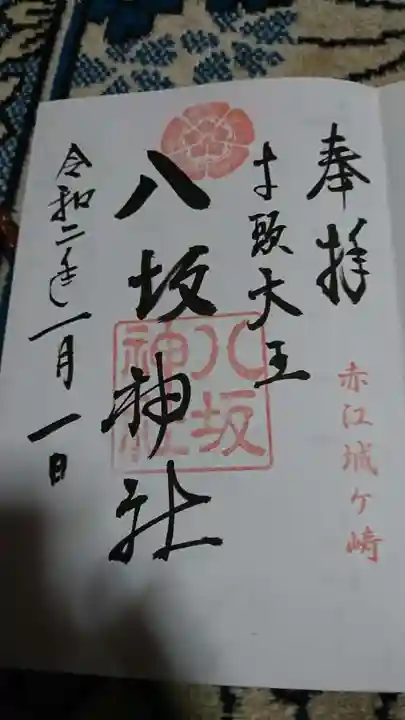 奉拝
赤江城ヶ崎
牛頭大王
八坂神社
八坂神社
令和二年一月一日